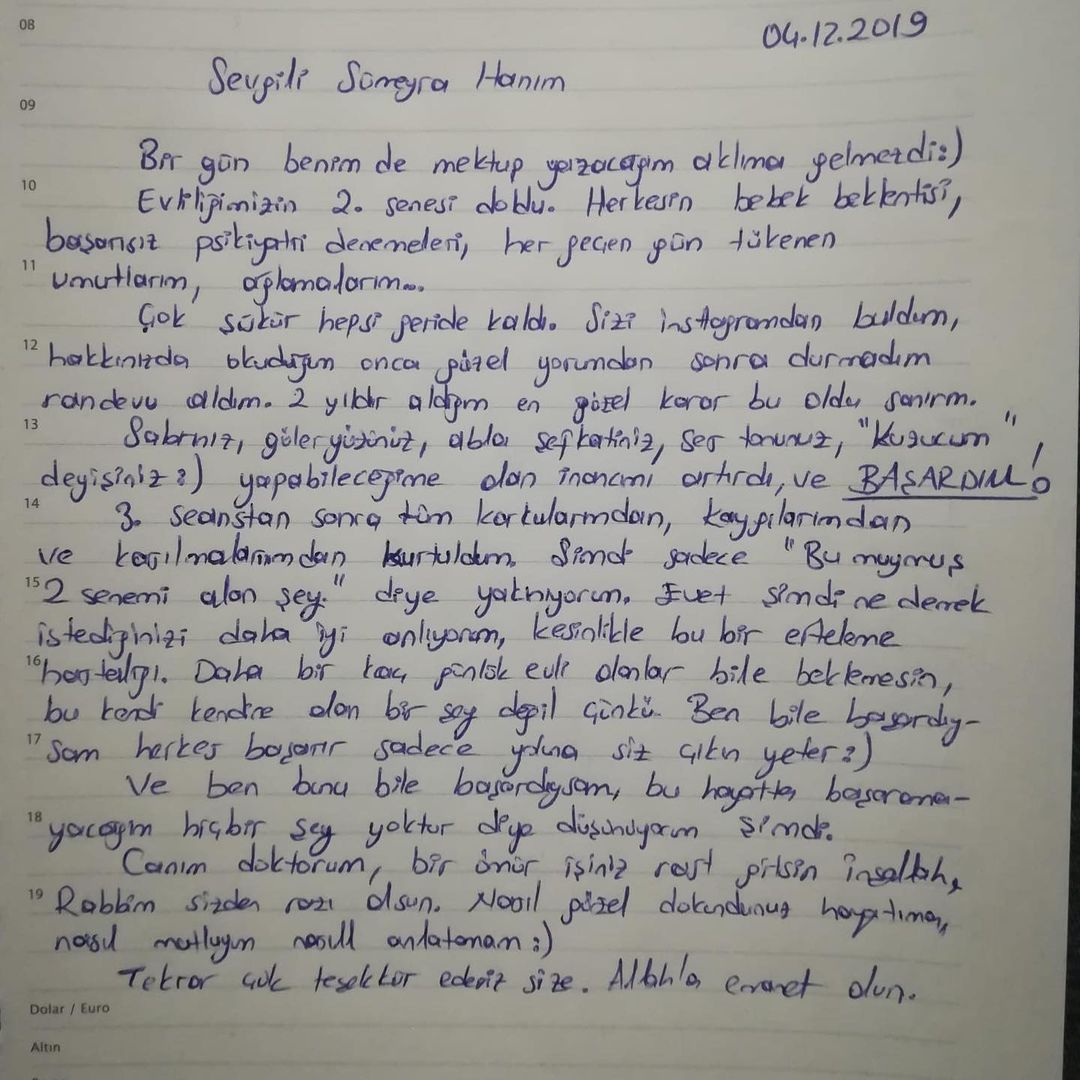 08
04.12.2019
Sevgili Sümeyra Hanım
09
Bir gün benim de mektup yazacağım aklıma gelmezdi:)
10
Evliliğimizin 2. senesi doldu. Herkesin bebek beklentisi,
başarısız psikiyatri denemeleri, her geçen gün tükenen
11
umutlarım, ağlamalarım...
Çok şükür hepsi geride kaldı. Sizi instagramdan buldum,
12
hakkınızda okuduğum onca güzel yorumdan sonra durmadım
randevu aldım. 2 yıldır aldığım en güzel karar bu oldu sanırım.
13
Sabrınız, güler yüzünüz, abla şefkatiniz, ses tonunuz, "Kuzucum"
deyişiniz :) yapabileceğime olan inancımı artırdı, ve BAŞARDIM!
14
3. seanstan sonra tüm korkularımdan, kaygılarımdan
ve kasılmalarımdan kurtuldum. Şimdi sadece "Bu muymuş
15
2 senemi alan şey." diye yakınıyorum. Evet şimdi ne demek
istediğinizi daha iyi anlıyorum, kesinlikle bu bir erteleme
16
hastalığı. Daha bir kaç günlük evli olanlar bile beklemesin,
bu kendi kendine olan bir şey değil çünkü. Ben bile başardıy-
17
sam herkes başarır sadece yoluna siz çıkın yeter :)
Ve ben bunu bile başardıysam, bu hayatta başarama-
18
yacağım hiçbir şey yoktur diye düşünüyorum şimdi.
Canım doktorum, bir ömür işiniz rast gitsin inşallah,
19
Rabbim sizden razı olsun. Nasıl güzel dokundunuz hayatıma,
nasıl mutluyum nasıll anlatamam :)
Tekrar çok teşekkür ederiz size. Allah'a emanet olun.
Dolar / Euro
Altın